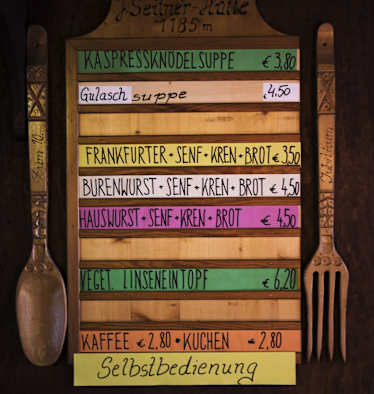 Seitner-Hütte
1185m
KASPRESSKNÖDELSUPPE € 3,80
Gulasch suppe €4,50
FRANKFURTER+SENF+KREN+BROT €3,50
BURENWURST+SENF+KREN+BROT €4,50
HAUSWURST+SENF+KREN+BROT € 4,50
VEGET. LINSENEINTOPF € 6,20
KAFFEE €2,80 + KUCHEN €2,80
Selbstbedienung
Zum 10.
Jubiläum